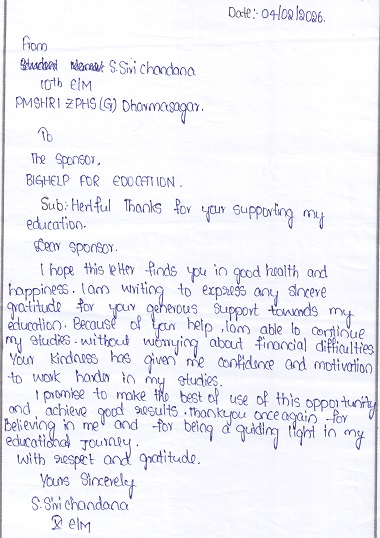 Date:- 04/02/2026.
From
S. Sivi Chandana
10th E/M
PMSHRI ZPHS (G) Dharmasagar.
To
The Sponsor.
BIGHELP FOR EDUCATION.
Sub:- Hertful Thanks for your supporting my
education.
Dear sponsor.
I hope this letter finds you in good health and
happiness. I am writing to express any sincere
gratitude for your generous support towards my
education. Because of your help, I am able to continue
my studies. without worrying about financial difficulties
Your kindness has given me confidence and motivation
to work harder in my studies.
I promise to make the best of use of this opportunity
and achieve good results. thankyou once again for
Believing in me and for being a guiding light in my
educational Journey.
With respect and gratitude.
Yours Sincerely
S. Sivi chandana
X E/M